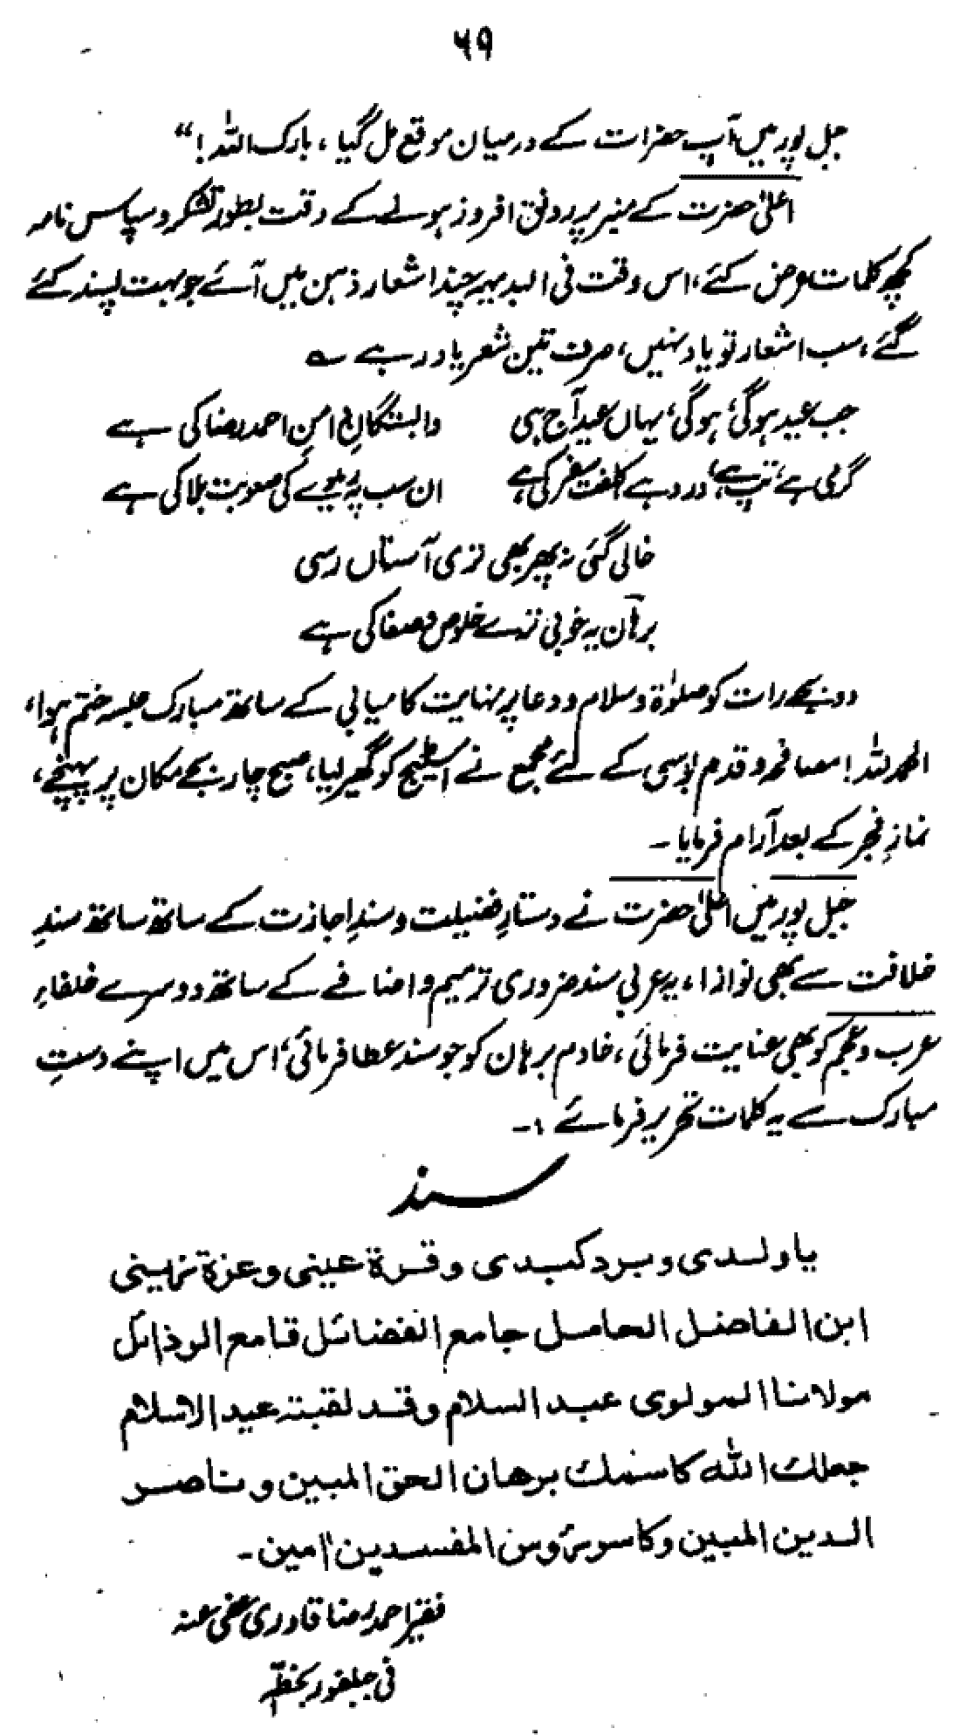 ۶۹
جبل پور میں آپ حضرات کے درمیان موقع مل گیا، بارک اللہ!“
اعلیٰ حضرت کے منبر پر رونق افروز ہونے کے وقت بطور تشکر و سپاس نامہ
کچھ کلمات عرض کئے، اس وقت فی البدیہہ چند اشعار ذہن میں آئے جو بہت پسند کئے
گئے، سب اشعار تو یاد نہیں، صرف تین شعر یاد رہے ؎
جب عید ہوگی، ہوگی، یہاں عید آج ہی وابستگانِ دامنِ احمد رضا کی ہے
گرمی ہے، تپ ہے، درد ہے کلفت سفر کی ہے ان سب پہ ریلوے کی صعوبت بلا کی ہے
خالی گئی نہ پھر بھی تری آستاں رسی
برہان یہ خوبی ترے خلوص و صفا کی ہے
دو بجے رات کو صلوٰۃ و سلام و دعا پر نہایت کامیابی کے ساتھ مبارک جلسہ ختم ہوا،
الحمد للہ! مصافحہ و قدم بوسی کے لئے مجمع نے اسٹیج کو گھیر لیا، صبح چار بجے مکان پر پہنچے،
نمازِ فجر کے بعد آرام فرمایا۔
جبل پور میں اعلیٰ حضرت نے دستارِ فضیلت و سندِ اجازت کے ساتھ ساتھ سندِ
خلافت سے بھی نوازا، یہ عربی سند ضروری ترمیم و اضافے کے ساتھ دوسرے خلفاءِ
عرب و عجم کو بھی عنایت فرمائی، خادم برہان کو جو سند عطا فرمائی، اس میں اپنے دستِ
مبارک سے یہ کلمات تحریر فرمائے :۔
سند
یا ولدی وبرد کبدی و قرۃ عینی وعزۃ زینی
ابن الفاضل الحامل جامع الفضائل قامع الرذائل
مولانا المولوی عبد السلام وقد لقبتہ عید الاسلام
جعلک اللہ کاسمک برھان الحق المبین و ناصر
الدین المبین وکاسر رؤس المفسدین اٰمین۔
فقیر احمد رضا قادری عفی عنہ
فی جبلفور بخطہٖ